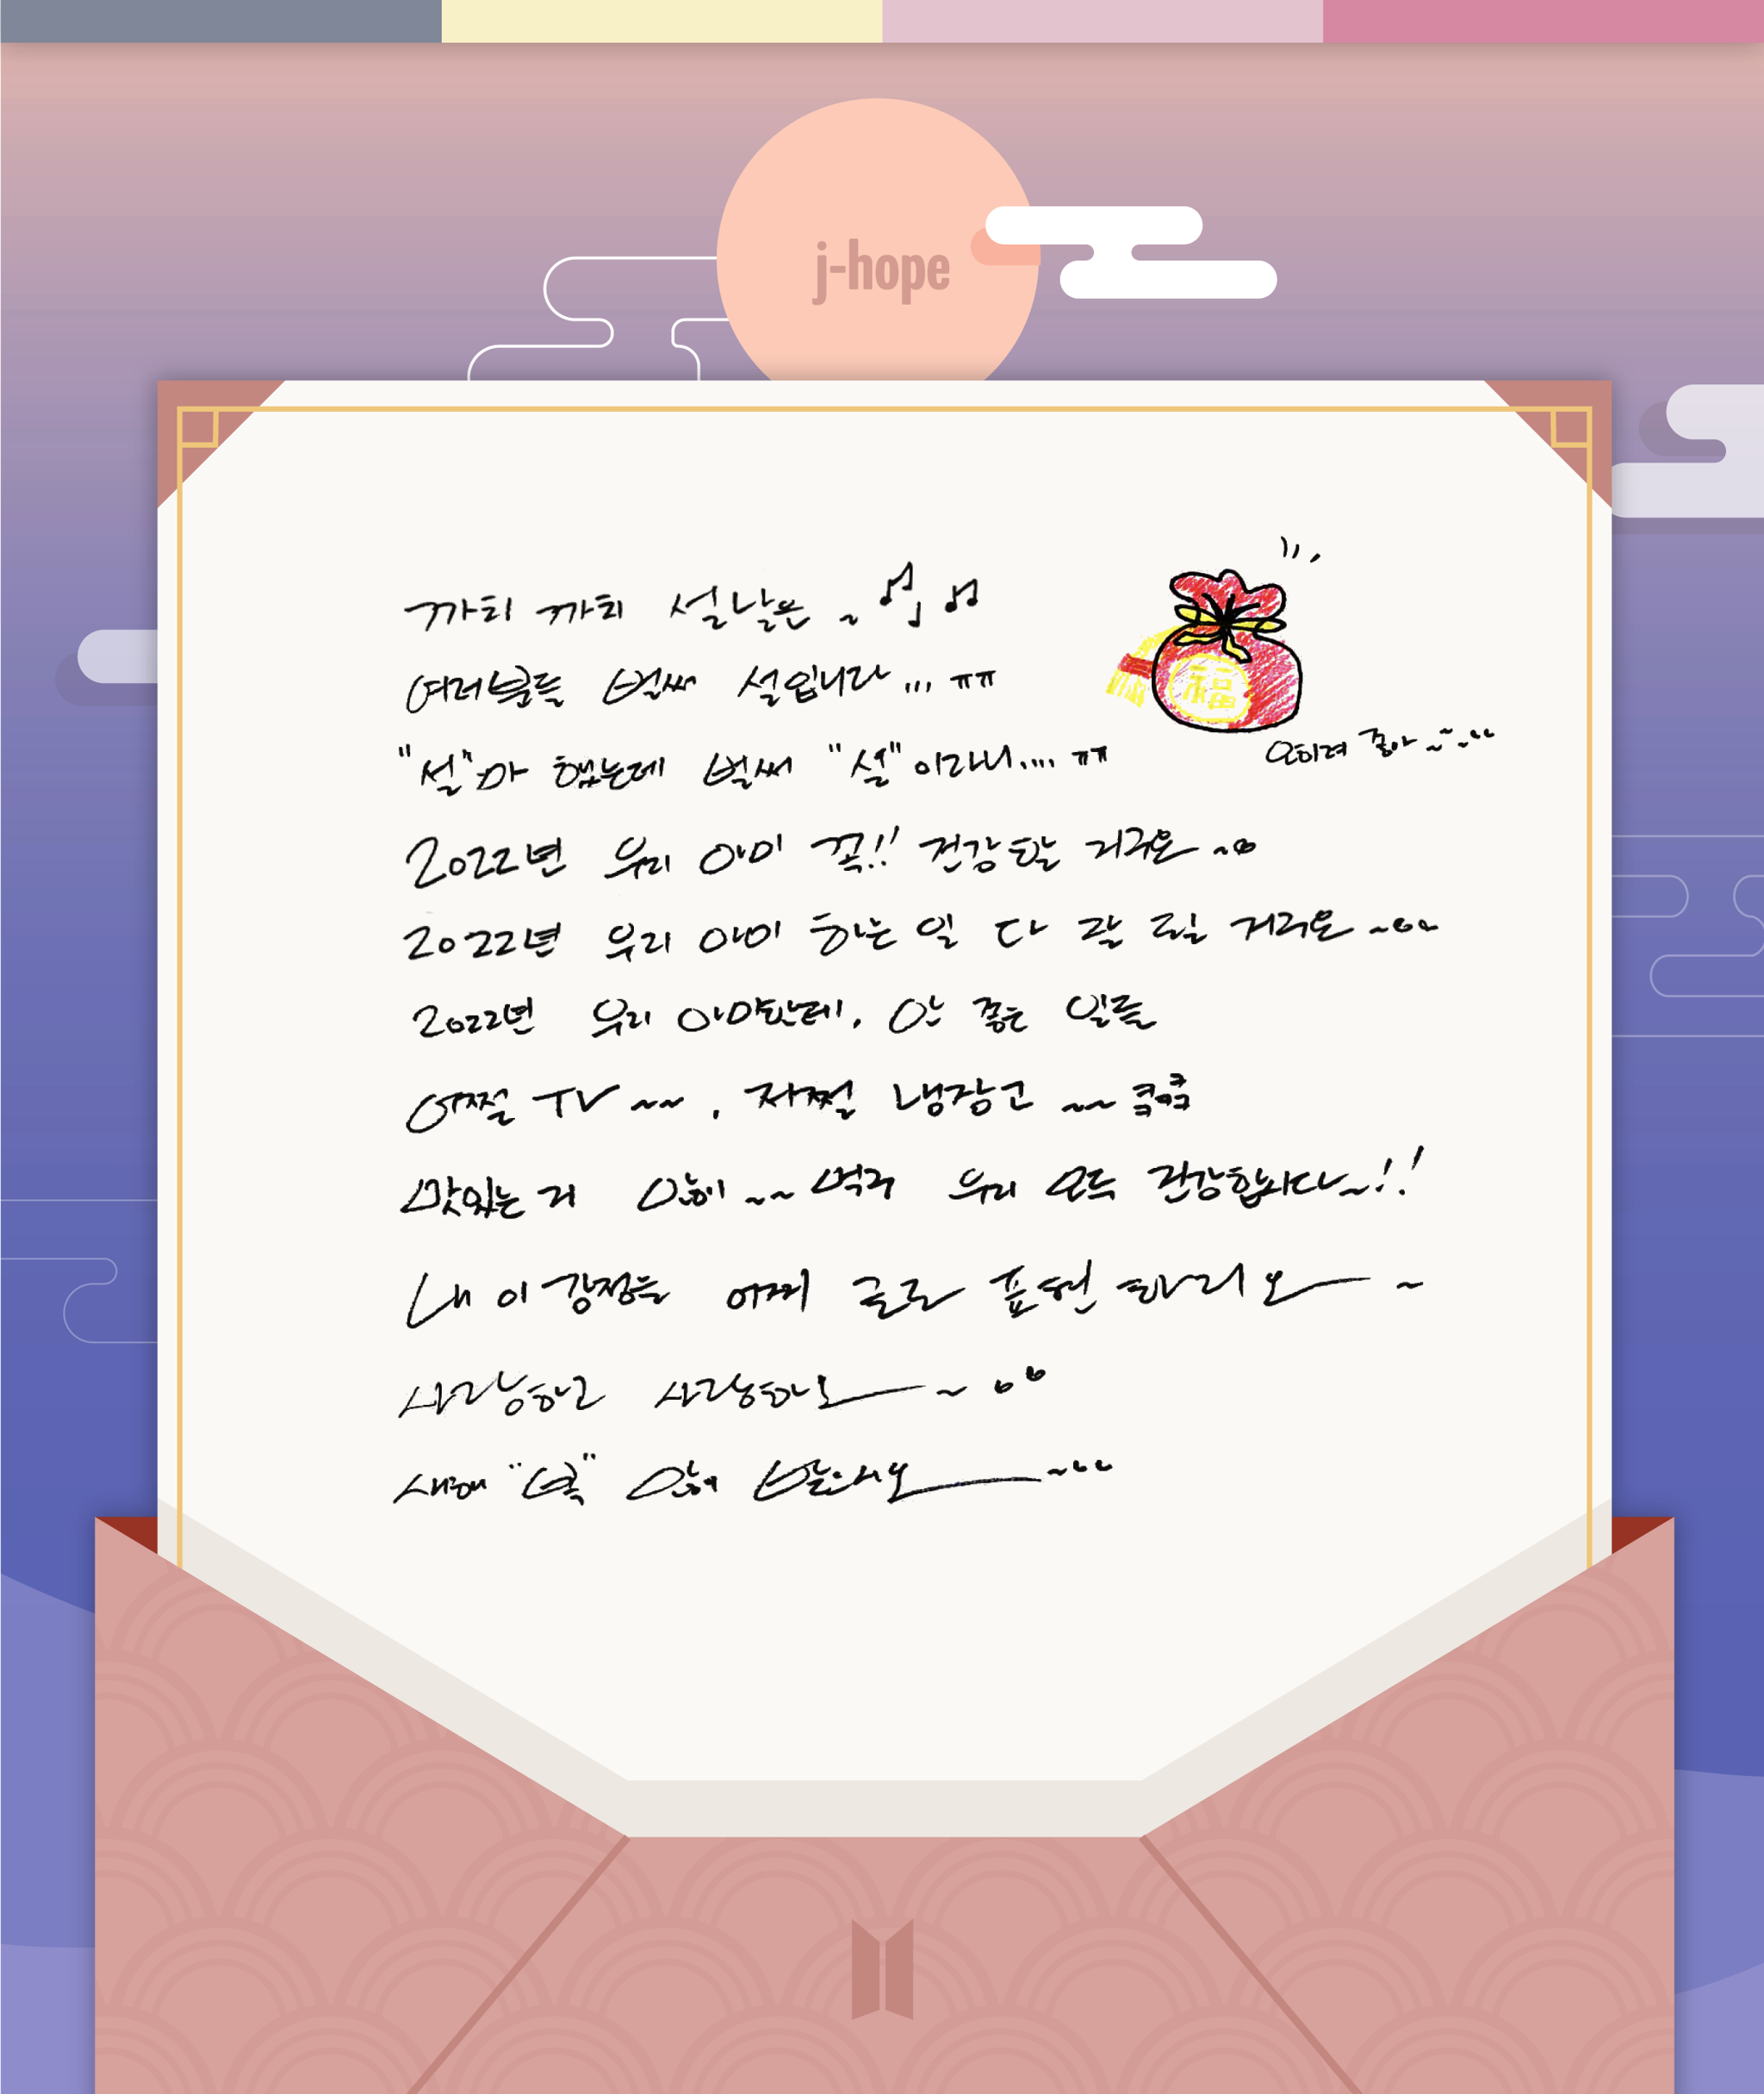 j-hope
까치 까치 설날은 ~ ♪♩♫
여러분들 벌써 설입니다... ㅠㅠ
福
"설"마 했는데 벌써 "설"이라니.... ㅠㅠ
오히려 좋아~~
2022년 우리 아미 꼭!! 건강할 거구요~
2022년 우리 아미 하는 일 다 잘 될 거구요~
2022년 우리 아미한테, 안 좋은 일들
어쩔 TV~~, 저쩔 냉장고~~ 쿠쿠쿠
맛있는 거 많이~~ 먹구 우리 모두 건강합시다~!!
내 이 감정을 어찌 글로 표현하리오 ~
사랑하고 사랑하오 ~
새해 "복" 많이 받으시오 ~